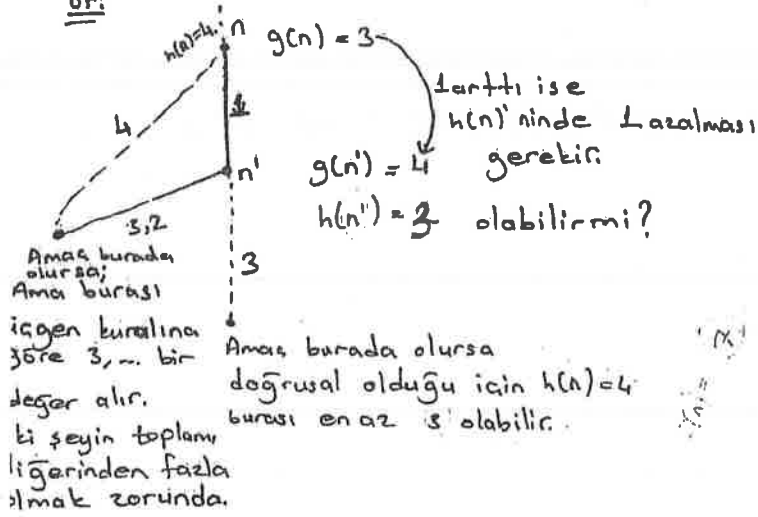 ör:
h(n)=4
n
g(n) = 3
1 arttı ise
h(n)'ninde 1 azalması
gerekir.
4
1
n'
g(n') = 4
h(n') = 3 olabilirmi?
3,2
3
Amaç burada
olursa;
Ama burası
içgen kuralına
göre 3,... bir
değer alır.
ki şeyin toplamı
diğerinden fazla
olmak zorunda.
Amaç burada olursa
doğrusal olduğu için h(n)=4
burası en az 3 olabilir.